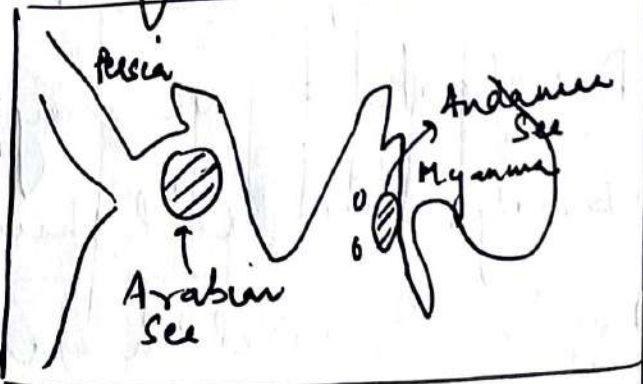 Persia
Andaman
Sea
Myanmar
Arabian
Sea